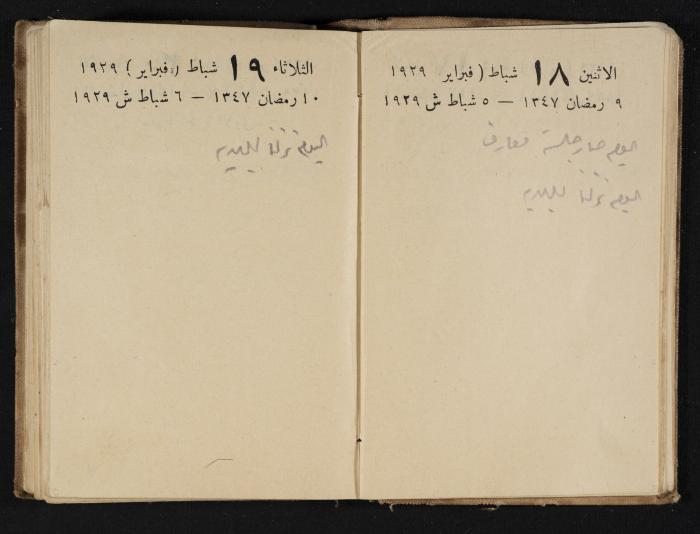 الاثنين ١٨ شباط (فبراير ١٩٢٩
٩ رمضان ١٣٤٧ — ٥ شباط ش ١٩٢٩
اليوم صار جلسة معارف
اليوم نزلنا للبلديه
الثلاثاء ١٩ شباط (فبراير) ١٩٢٩
١٠ رمضان ١٣٤٧ — ٦ شباط ش ١٩٢٩
اليوم نزلنا للبلديه